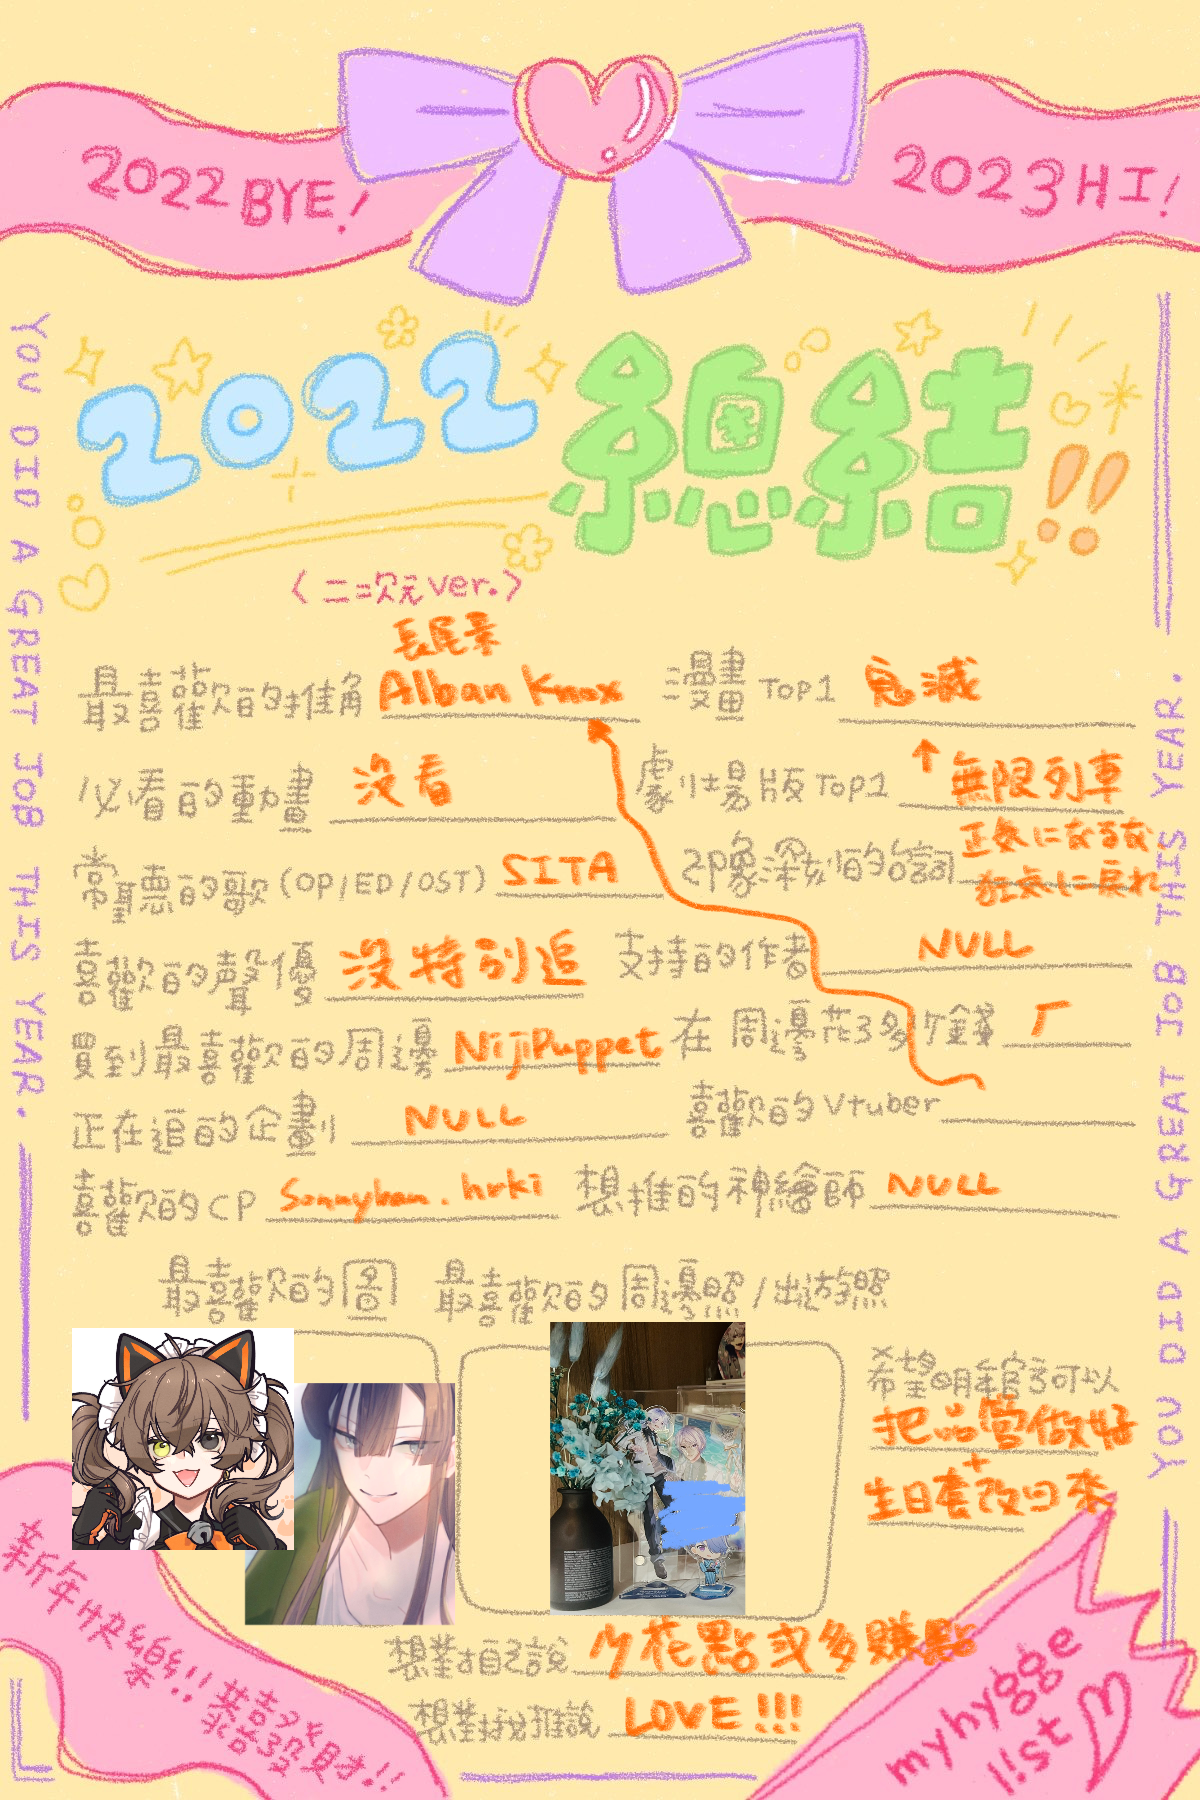 2022 BYE!
2023 HI!
YOU DID A GREAT JOB THIS YEAR.
2022 總結!!
〈二次元ver.〉
長尾景
最喜歡的推角 Alban Knox
漫畫 TOP1 鬼滅
必看的動畫 沒看
劇場版 TOP1 ↑無限列車
常聽的歌(OP/ED/OST) SITA
印象深刻的台詞 正気になるな
狂気に戻れ
喜歡的聲優 沒特別追
支持的作者 NULL
買到最喜歡的周邊 NijiPuppet
在周邊花了多少錢 厂
正在追的企劃 NULL
喜歡的Vtuber
喜歡的CP Sonnyban.hrki
想推的神繪師 NULL
最喜歡的圖
最喜歡的周邊照/出遊照
希望明年官方可以
把品管做好
+
生日套改回來
想對自己說 少花點或多賺點
想對我推說 LOVE!!!
新年快樂!!恭喜發財!!
myhygge
list
YOU DID A GREAT JOB THIS YEAR.